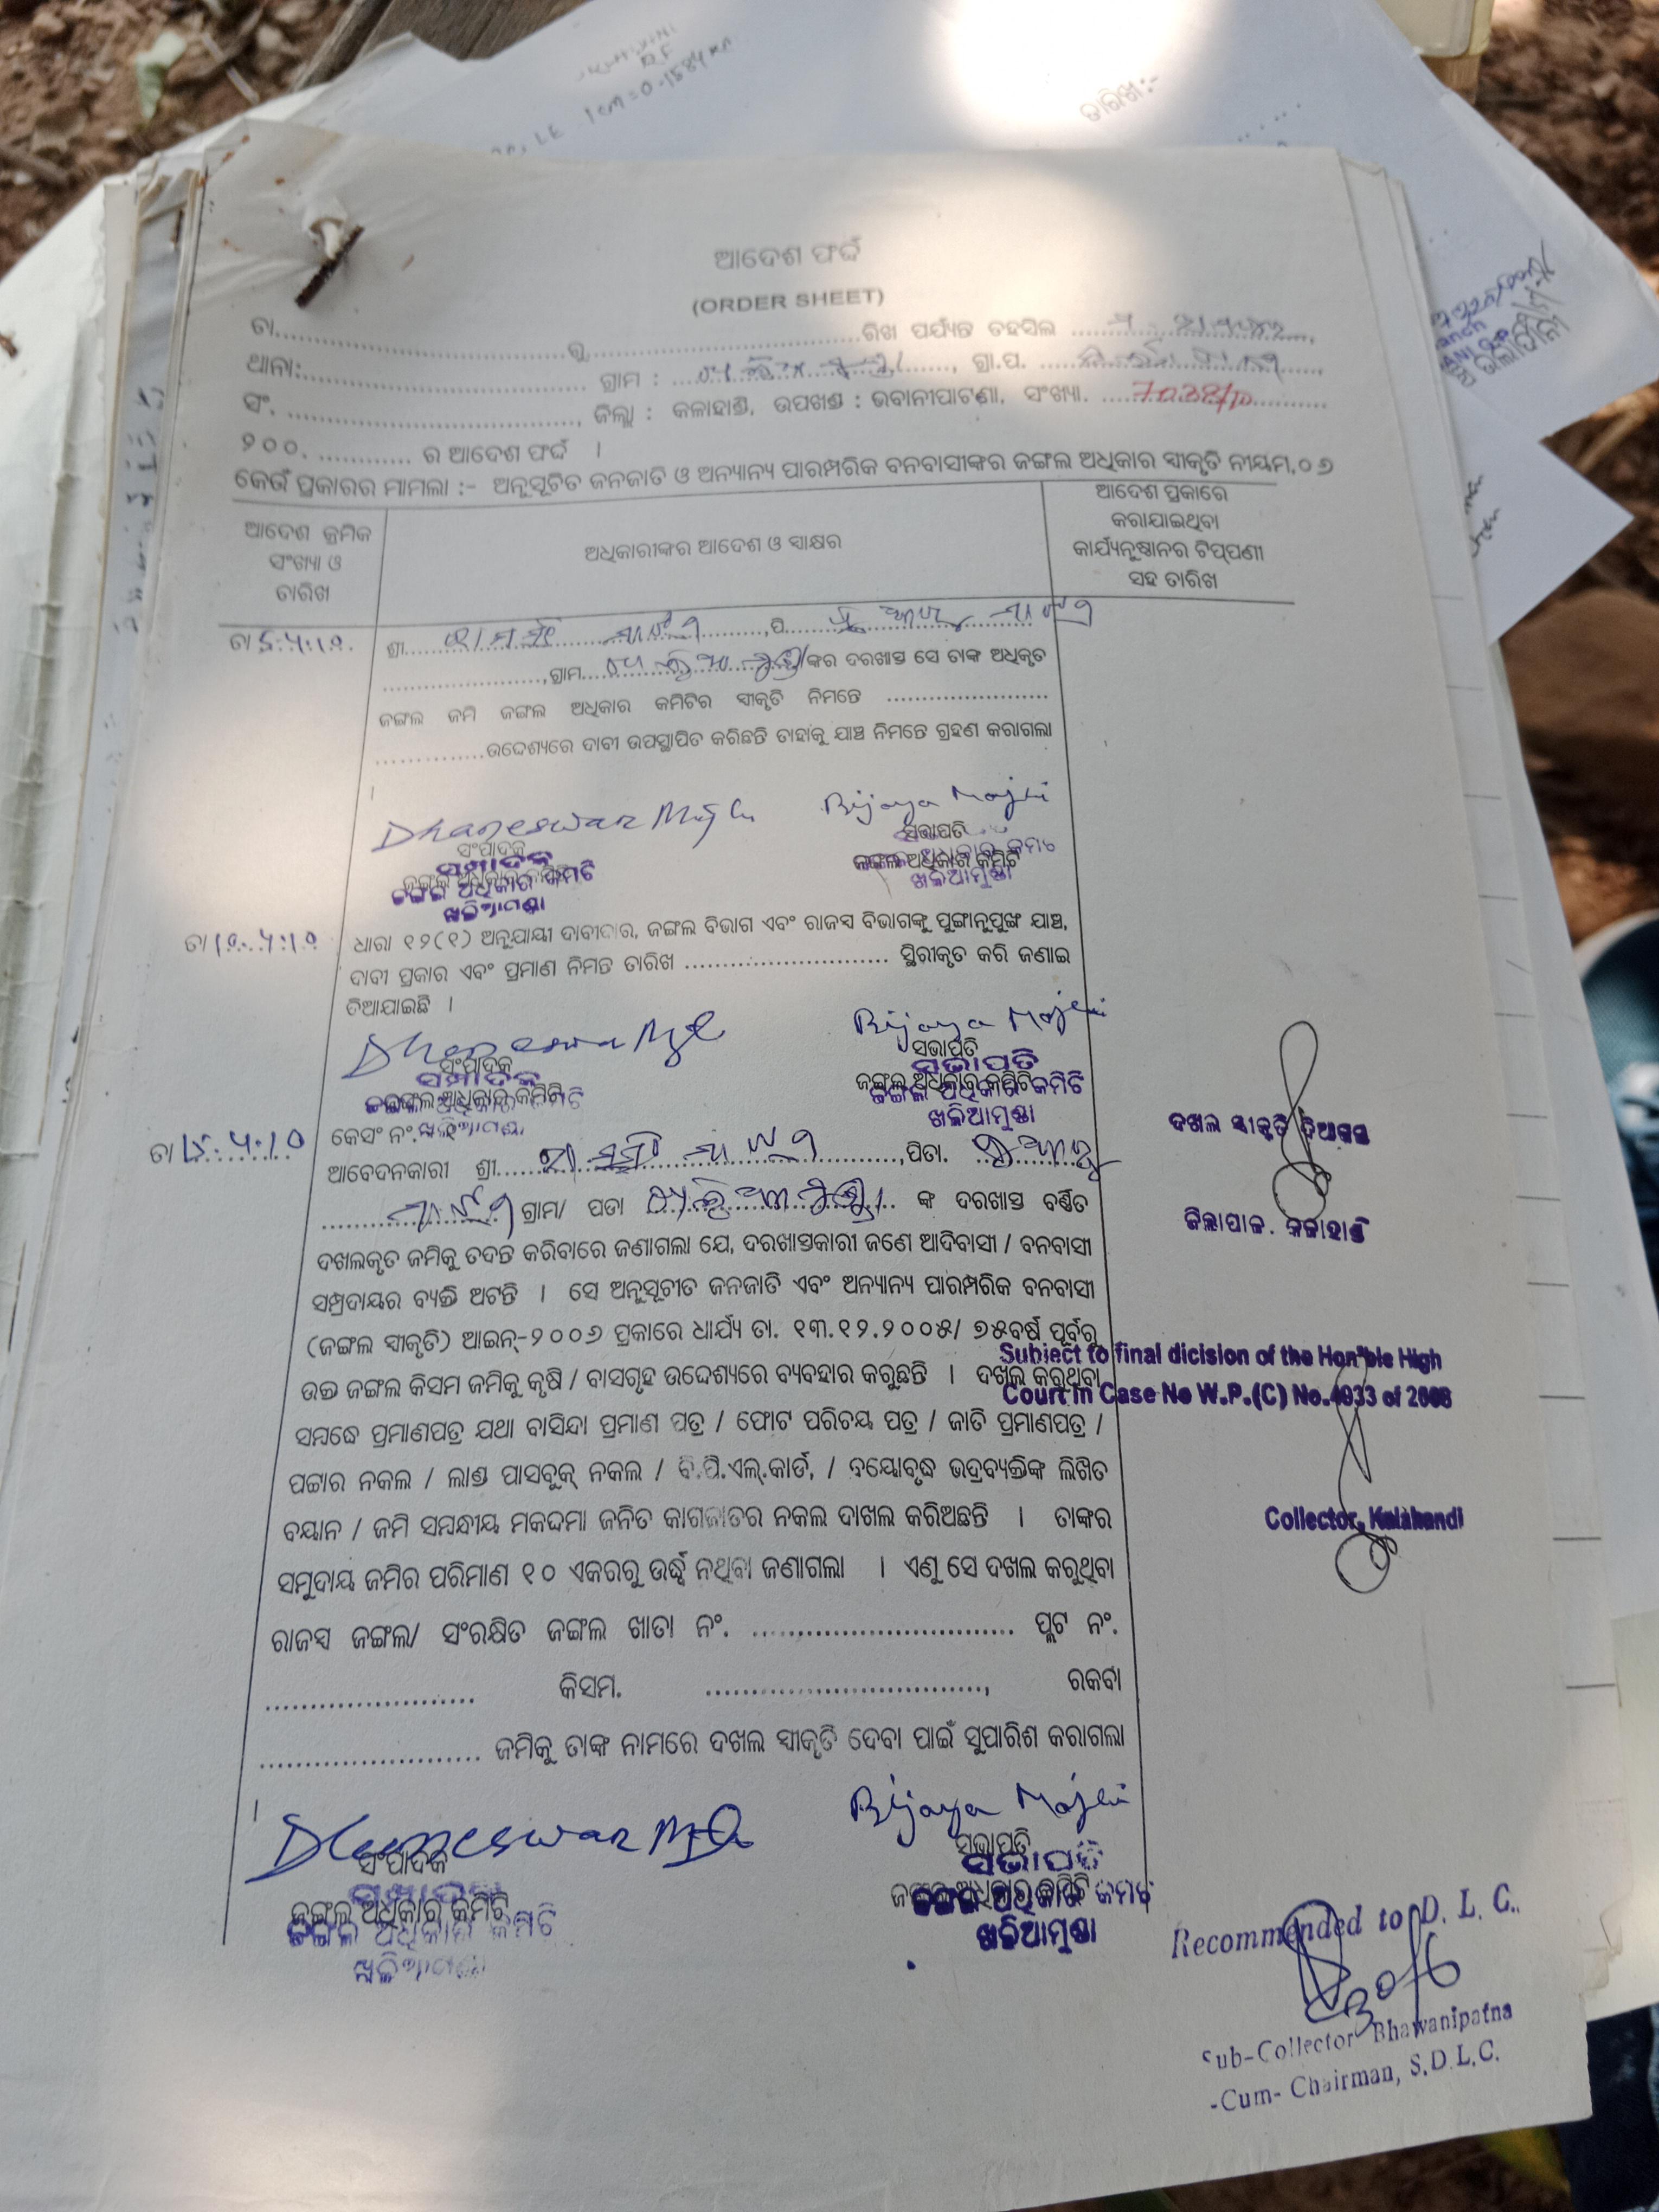 1cm=0.1584km
ତାରିଖ:-
ଆଦେଶ ଫର୍ଦ୍ଦ
(ORDER SHEET)
ତା..............................ରୁ..............................ରିଖ ପର୍ଯ୍ୟନ୍ତ ତହସିଲ
ଥାନା:.............................. ଗ୍ରାମ : ଖଲିଆମୁଣ୍ଡା, ଗ୍ରା.ପ.
ସଂ. .............................., ଜିଲ୍ଲା : କଳାହାଣ୍ଡି, ଉପଖଣ୍ଡ : ଭବାନୀପାଟଣା, ସଂଖ୍ୟା.
୨୦୦. ............ ର ଆଦେଶ ଫର୍ଦ୍ଦ ।
କେଉଁ ପ୍ରକାରର ମାମଲା :- ଅନୁସୂଚିତ ଜନଜାତି ଓ ଅନ୍ୟାନ୍ୟ ପାରମ୍ପରିକ ବନବାସୀଙ୍କର ଜଙ୍ଗଲ ଅଧିକାର ସ୍ୱୀକୃତି ନୀୟମ,୦୬
ଆଦେଶ କ୍ରମିକ
ସଂଖ୍ୟା ଓ
ତାରିଖ
ଅଧିକାରୀଙ୍କର ଆଦେଶ ଓ ସ୍ୱାକ୍ଷର
ଆଦେଶ ପ୍ରକାରେ
କରାଯାଇଥିବା
କାର୍ଯ୍ୟନୁଷ୍ଠାନର ଟିପ୍‌ପଣୀ
ସହ ତାରିଖ
ତା 5.4.10
ଶ୍ରୀ ମାଝୀ,ପି. ମାଝୀ
......................,ଗ୍ରାମ ଖଲିଆମୁଣ୍ଡା ଙ୍କର ଦରଖାସ୍ତ ସେ ତାଙ୍କ ଅଧିକୃତ
ଜଙ୍ଗଲ ଜମି ଜଙ୍ଗଲ ଅଧିକାର କମିଟିର ସ୍ୱୀକୃତି ନିମନ୍ତେ ......................
...............ଉଦ୍ଦେଶ୍ୟରେ ଦାବୀ ଉପସ୍ଥାପିତ କରିଛନ୍ତି ତାହାକୁ ଯାଞ୍ଚ ନିମନ୍ତେ ଗ୍ରହଣ କରାଗଲା
।
Dhaneswar Majhi Bijaya Majhi
ସଂପାଦକ ସଭାପତି
ସମ୍ପାଦକ
ଜଙ୍ଗଲ ଅଧିକାର କମିଟି ଜଙ୍ଗଲ ଅଧିକାର କମିଟି
ଜଙ୍ଗଲ ଅଧିକାର କମିଟି ଜଙ୍ଗଲ ଅଧିକାର କମିଟି
ଖଳିଆମୁଣ୍ଡା ଖଳିଆମୁଣ୍ଡା
ତା 10.4.10
ଧାରା ୧୨(୧) ଅନୁଯାୟୀ ଦାବୀଦାର, ଜଙ୍ଗଲ ବିଭାଗ ଏବଂ ରାଜସ୍ୱ ବିଭାଗଙ୍କୁ ପୁଙ୍ଖାନୁପୁଙ୍ଖ ଯାଞ୍ଚ,
ଦାବୀ ପ୍ରକାର ଏବଂ ପ୍ରମାଣ ନିମନ୍ତେ ତାରିଖ .......................... ସ୍ଥିରୀକୃତ କରି ଜଣାଇ
ଦିଆଯାଇଛି ।
Dhaneswar Majhi Bijaya Majhi
ସଂପାଦକ ସଭାପତି
ସମ୍ପାଦକ ସଭାପତି
ଜଙ୍ଗଲ ଅଧିକାର କମିଟି ଜଙ୍ଗଲ ଅଧିକାର କମିଟି
ଜଙ୍ଗଲ ଅଧିକାର କମିଟି ଜଙ୍ଗଲ ଅଧିକାର କମିଟି
ଖଳିଆମୁଣ୍ଡା ଖଳିଆମୁଣ୍ଡା
ତା 15.4.10
କେସଂ ନଂ.
ଆବେଦନକାରୀ ଶ୍ରୀ ମାଝୀ,ପିତା.
ମାଝୀ ଗ୍ରାମ/ ପଡା ଖଲିଆମୁଣ୍ଡା ଙ୍କ ଦରଖାସ୍ତ ବର୍ଣ୍ଣିତ
ଦଖଲକୃତ ଜମିକୁ ତଦନ୍ତ କରିବାରେ ଜଣାଗଲା ଯେ, ଦରଖାସ୍ତକାରୀ ଜଣେ ଆଦିବାସୀ / ବନବାସୀ
ସମ୍ପ୍ରଦାୟର ବ୍ୟକ୍ତି ଅଟନ୍ତି । ସେ ଅନୁସୂଚୀତ ଜନଜାତି ଏବଂ ଅନ୍ୟାନ୍ୟ ପାରମ୍ପରିକ ବନବାସୀ
(ଜଙ୍ଗଲ ସ୍ୱୀକୃତି) ଆଇନ୍-୨୦୦୬ ପ୍ରକାରେ ଧାର୍ଯ୍ୟ ତା. ୧୩.୧୨.୨୦୦୫/ ୭୫ବର୍ଷ ପୂର୍ବରୁ
ଉକ୍ତ ଜଙ୍ଗଲ କିସମ ଜମିକୁ କୃଷି / ବାସଗୃହ ଉଦ୍ଦେଶ୍ୟରେ ବ୍ୟବହାର କରୁଛନ୍ତି । ଦଖଲ କରୁଥିବା
ସମ୍ବନ୍ଧେ ପ୍ରମାଣପତ୍ର ଯଥା ବାସିନ୍ଦା ପ୍ରମାଣ ପତ୍ର / ଫୋଟ ପରିଚୟ ପତ୍ର / ଜାତି ପ୍ରମାଣପତ୍ର /
ପଟ୍ଟାର ନକଲ / ଲାଣ୍ଡ ପାସବୁକ୍ ନକଲ / ବି.ପି.ଏଲ୍.କାର୍ଡ, / ବୟୋବୃଦ୍ଧ ଭଦ୍ରବ୍ୟକ୍ତିଙ୍କ ଲିଖିତ
ବୟାନ / ଜମି ସମ୍ବନ୍ଧୀୟ ମକଦ୍ଦମା ଜନିତ କାଗଜାତର ନକଲ ଦାଖଲ କରିଅଛନ୍ତି । ତାଙ୍କର
ସମୁଦାୟ ଜମିର ପରିମାଣ ୧୦ ଏକରରୁ ଉର୍ଦ୍ଧ୍ୱ ନଥିବା ଜଣାଗଲା । ଏଣୁ ସେ ଦଖଲ କରୁଥିବା
ରାଜସ୍ୱ ଜଙ୍ଗଲ/ ସଂରକ୍ଷିତ ଜଙ୍ଗଲ ଖାତା ନଂ. .............................. ପ୍ଲଟ ନଂ.
........................ କିସମ. ..............................., ରକବା
......................... ଜମିକୁ ତାଙ୍କ ନାମରେ ଦଖଲ ସ୍ୱୀକୃତି ଦେବା ପାଇଁ ସୁପାରିଶ କରାଗଲା
।
Dhaneswar Majhi Bijaya Majhi
ସଂପାଦକ ସଭାପତି
ସମ୍ପାଦକ ସଭାପତି
ଜଙ୍ଗଲ ଅଧିକାର କମିଟି ଜଙ୍ଗଲ ଅଧିକାର କମିଟି
ଜଙ୍ଗଲ ଅଧିକାର କମିଟି ଜଙ୍ଗଲ ଅଧିକାର କମିଟି
ଖଳିଆମୁଣ୍ଡା ଖଳିଆମୁଣ୍ଡା
ଦଖଲ ସ୍ୱୀକୃତି ଦିଆଗଲା
ଜିଲ୍ଲାପାଳ. କଳାହାଣ୍ଡି
Subject to final dicision of the Hon'ble High
Court in Case No W.P.(C) No.4933 of 2008
Collector, Kalahandi
Recommended to D. L. C.
Sub-Collector Bhawanipatna
-Cum- Chairman, S.D.L.C.